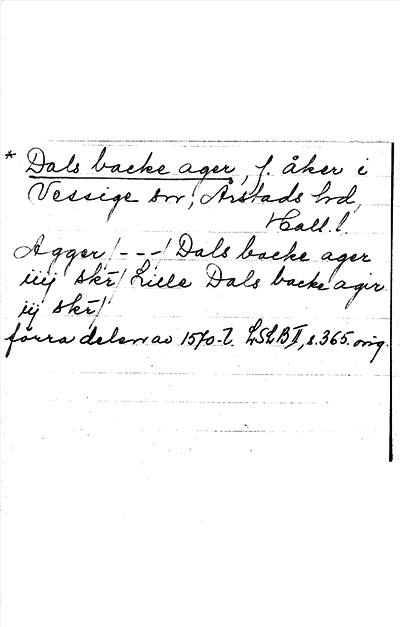 * Dals backe ager, f. åker i
Vessige sn, Årstads hd,
Hall. l.
Agger /---/ Dals backe ager
iiij skr̄/ Lille Dals backe agir
iij skr̄/
förra delen av 1570-t. LSLB II, s. 365. orig.